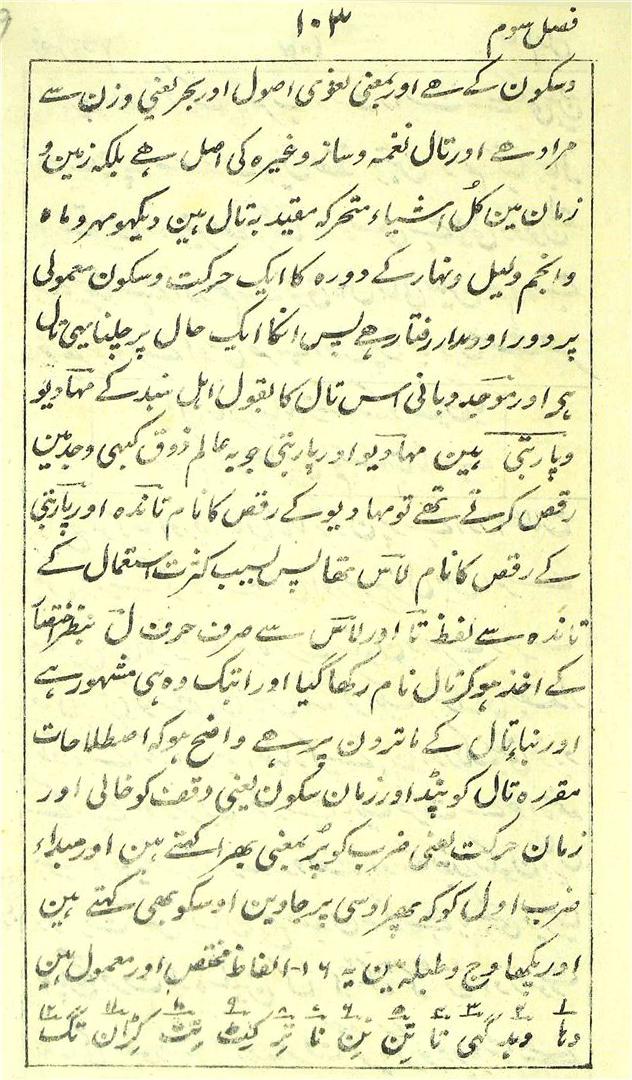 فصل سوم
۱۰۳
وسکون کے ہے اور بمعنی لغوی اصول اور بحر یعنی وزن سے
مراد ہے اور تال نغمہ و ساز وغیرہ کی اصل ہے بلکہ زمین و
زمان مین کل اشیاء متحرکہ مقید بہ تال ہین دیکھو مہر و ماہ
و انجم و لیل و نہار کے دورہ کا ایک حرکت و سکون معمولی
پر دور اور مدار رفتار ہے پس انکا ایک حال پر چلنا یہی تال
ہے اور موجد و بانی اس تال کا بقول اہل ہند کے مہادیو
و پاربتی ہین مہادیو اور پاربتی جو بہ عالم ذوق کبھی وجد مین
رقص کرتے تھے تو مہادیو کے رقص کا نام تانڈہ اور پاربتی
کے رقص کا نام لاس تھا پس بسبب کثرت استعمال کے
تانڈہ سے لفظ تا اور لاس سے صرف حرف ل بنظر اختصار
کے اخذ ہو کر تال نام رکھا گیا اور ابتک وہ ہی مشہور ہے
اور بناء تال کے ماترون پر ہے واضح ہو کہ اصطلاحات
مقررہ تال کو پنڈ اور زمان سکون یعنی وقفہ کو خالی اور
زمان حرکت یعنی ضرب کو پُر بمعنی بھرا کہتے ہین اور مبداء
ضرب اول کو کہ پھر اوسی پر جاوین اوسکو بھی کہتے ہین
اور پکھاوج و طبلہ مین یہ ۱۶ - الفاظ مختص اور معمول ہین
۱ ۲ ۳ ۴ ۵ ۶ ۷ ۸ ۹ ۱۰ ۱۱ ۱۲
دہا گہی تا تِن نا تِر کِٹ کِڑان تک